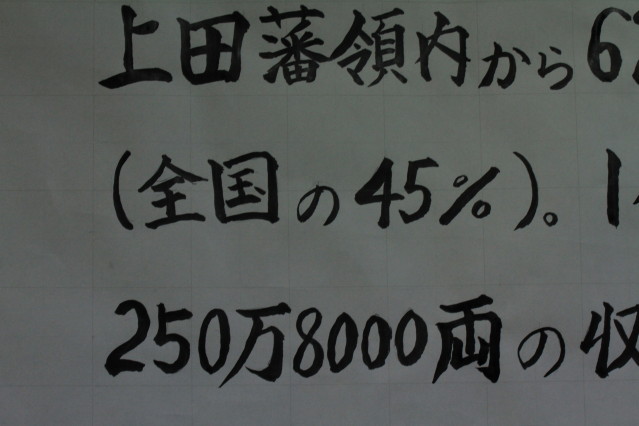 上田藩領内から6
(全国の45%)。1
250万8000両の収